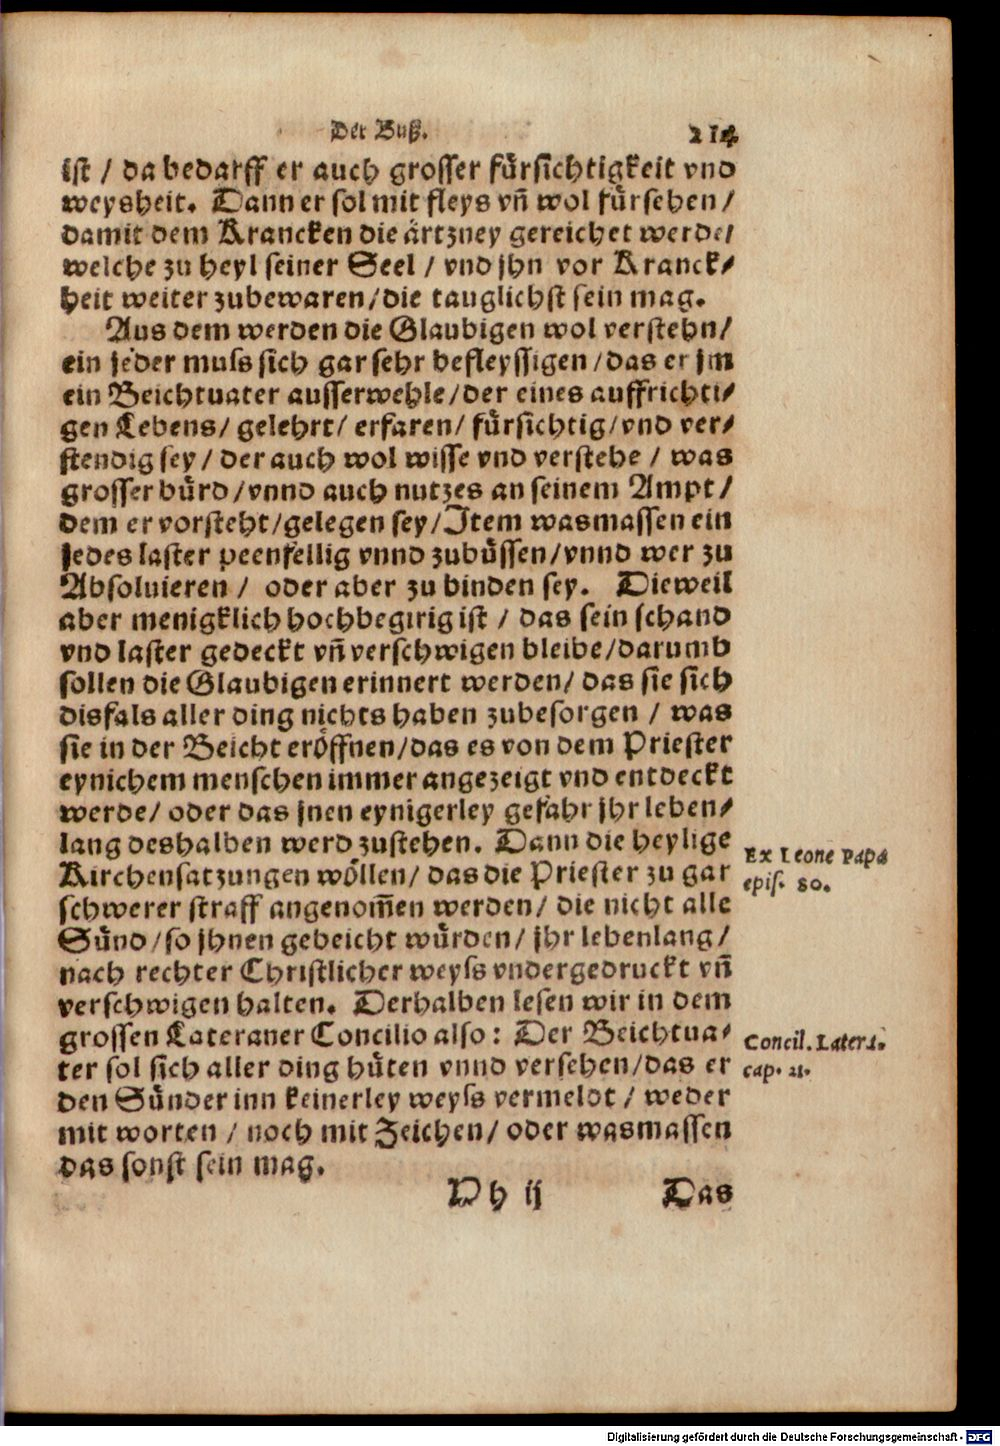 Der Buß. 214
ist / da bedarff er auch grosser fürsichtigkeit vnd
weysheit. Dann er sol mit fleys vñ wol fürsehen /
damit dem Krancken die ärtzney gereichet werde /
welche zu heyl seiner Seel / vnd jhn vor Kranck⸗
heit weiter zubewaren / die tauglichst sein mag.
Aus dem werden die Glaubigen wol verstehn /
ein jeder muss sich gar sehr befleyssigen / das er jm
ein Beichtuater ausserwehle / der eines auffrichti⸗
gen Lebens / gelehrt / erfaren / fürsichtig / vnd ver⸗
stendig sey / der auch wol wisse vnd verstehe / was
grosser bürd / vnnd auch nutzes an seinem Ampt /
dem er vorsteht / gelegen sey / Item wasmassen ein
jedes laster peenfellig vnnd zubüssen / vnnd wer zu
Absoluieren / oder aber zu binden sey. Dieweil
aber menigklich hochbegirig ist / das sein schand
vnd laster gedeckt vñ verschwigen bleibe / darumb
sollen die Glaubigen erinnert werden / das sie sich
disfals aller ding nichts haben zubesorgen / was
sie in der Beicht eröffnen / das es von dem Priester
eynichem menschen immer angezeigt vnd entdeckt
werde / oder das jnen eynigerley gefahr jhr leben⸗
lang deshalben werd zustehen. Dann die heylige
Kirchensatzungen wöllen / das die Priester zu gar
schwerer straff angenom̃en werden / die nicht alle
Sünd / so jhnen gebeicht würden / jhr lebenlang /
nach rechter Christlicher weyss vndergedruckt vñ
verschwigen halten. Derhalben lesen wir in dem
grossen Lateraner Concilio also: Der Beichtua⸗
ter sol sich aller ding hüten vnnd versehen / das er
den Sünder inn keinerley weyss vermeldt / weder
mit worten / noch mit Zeichen / oder wasmassen
das sonst sein mag.
Ex Leone Papa
epis. 80.
Concil. Latera.
cap. 21.
Hh ij Das
Digitalisierung gefördert durch die Deutsche Forschungsgemeinschaft - DFG